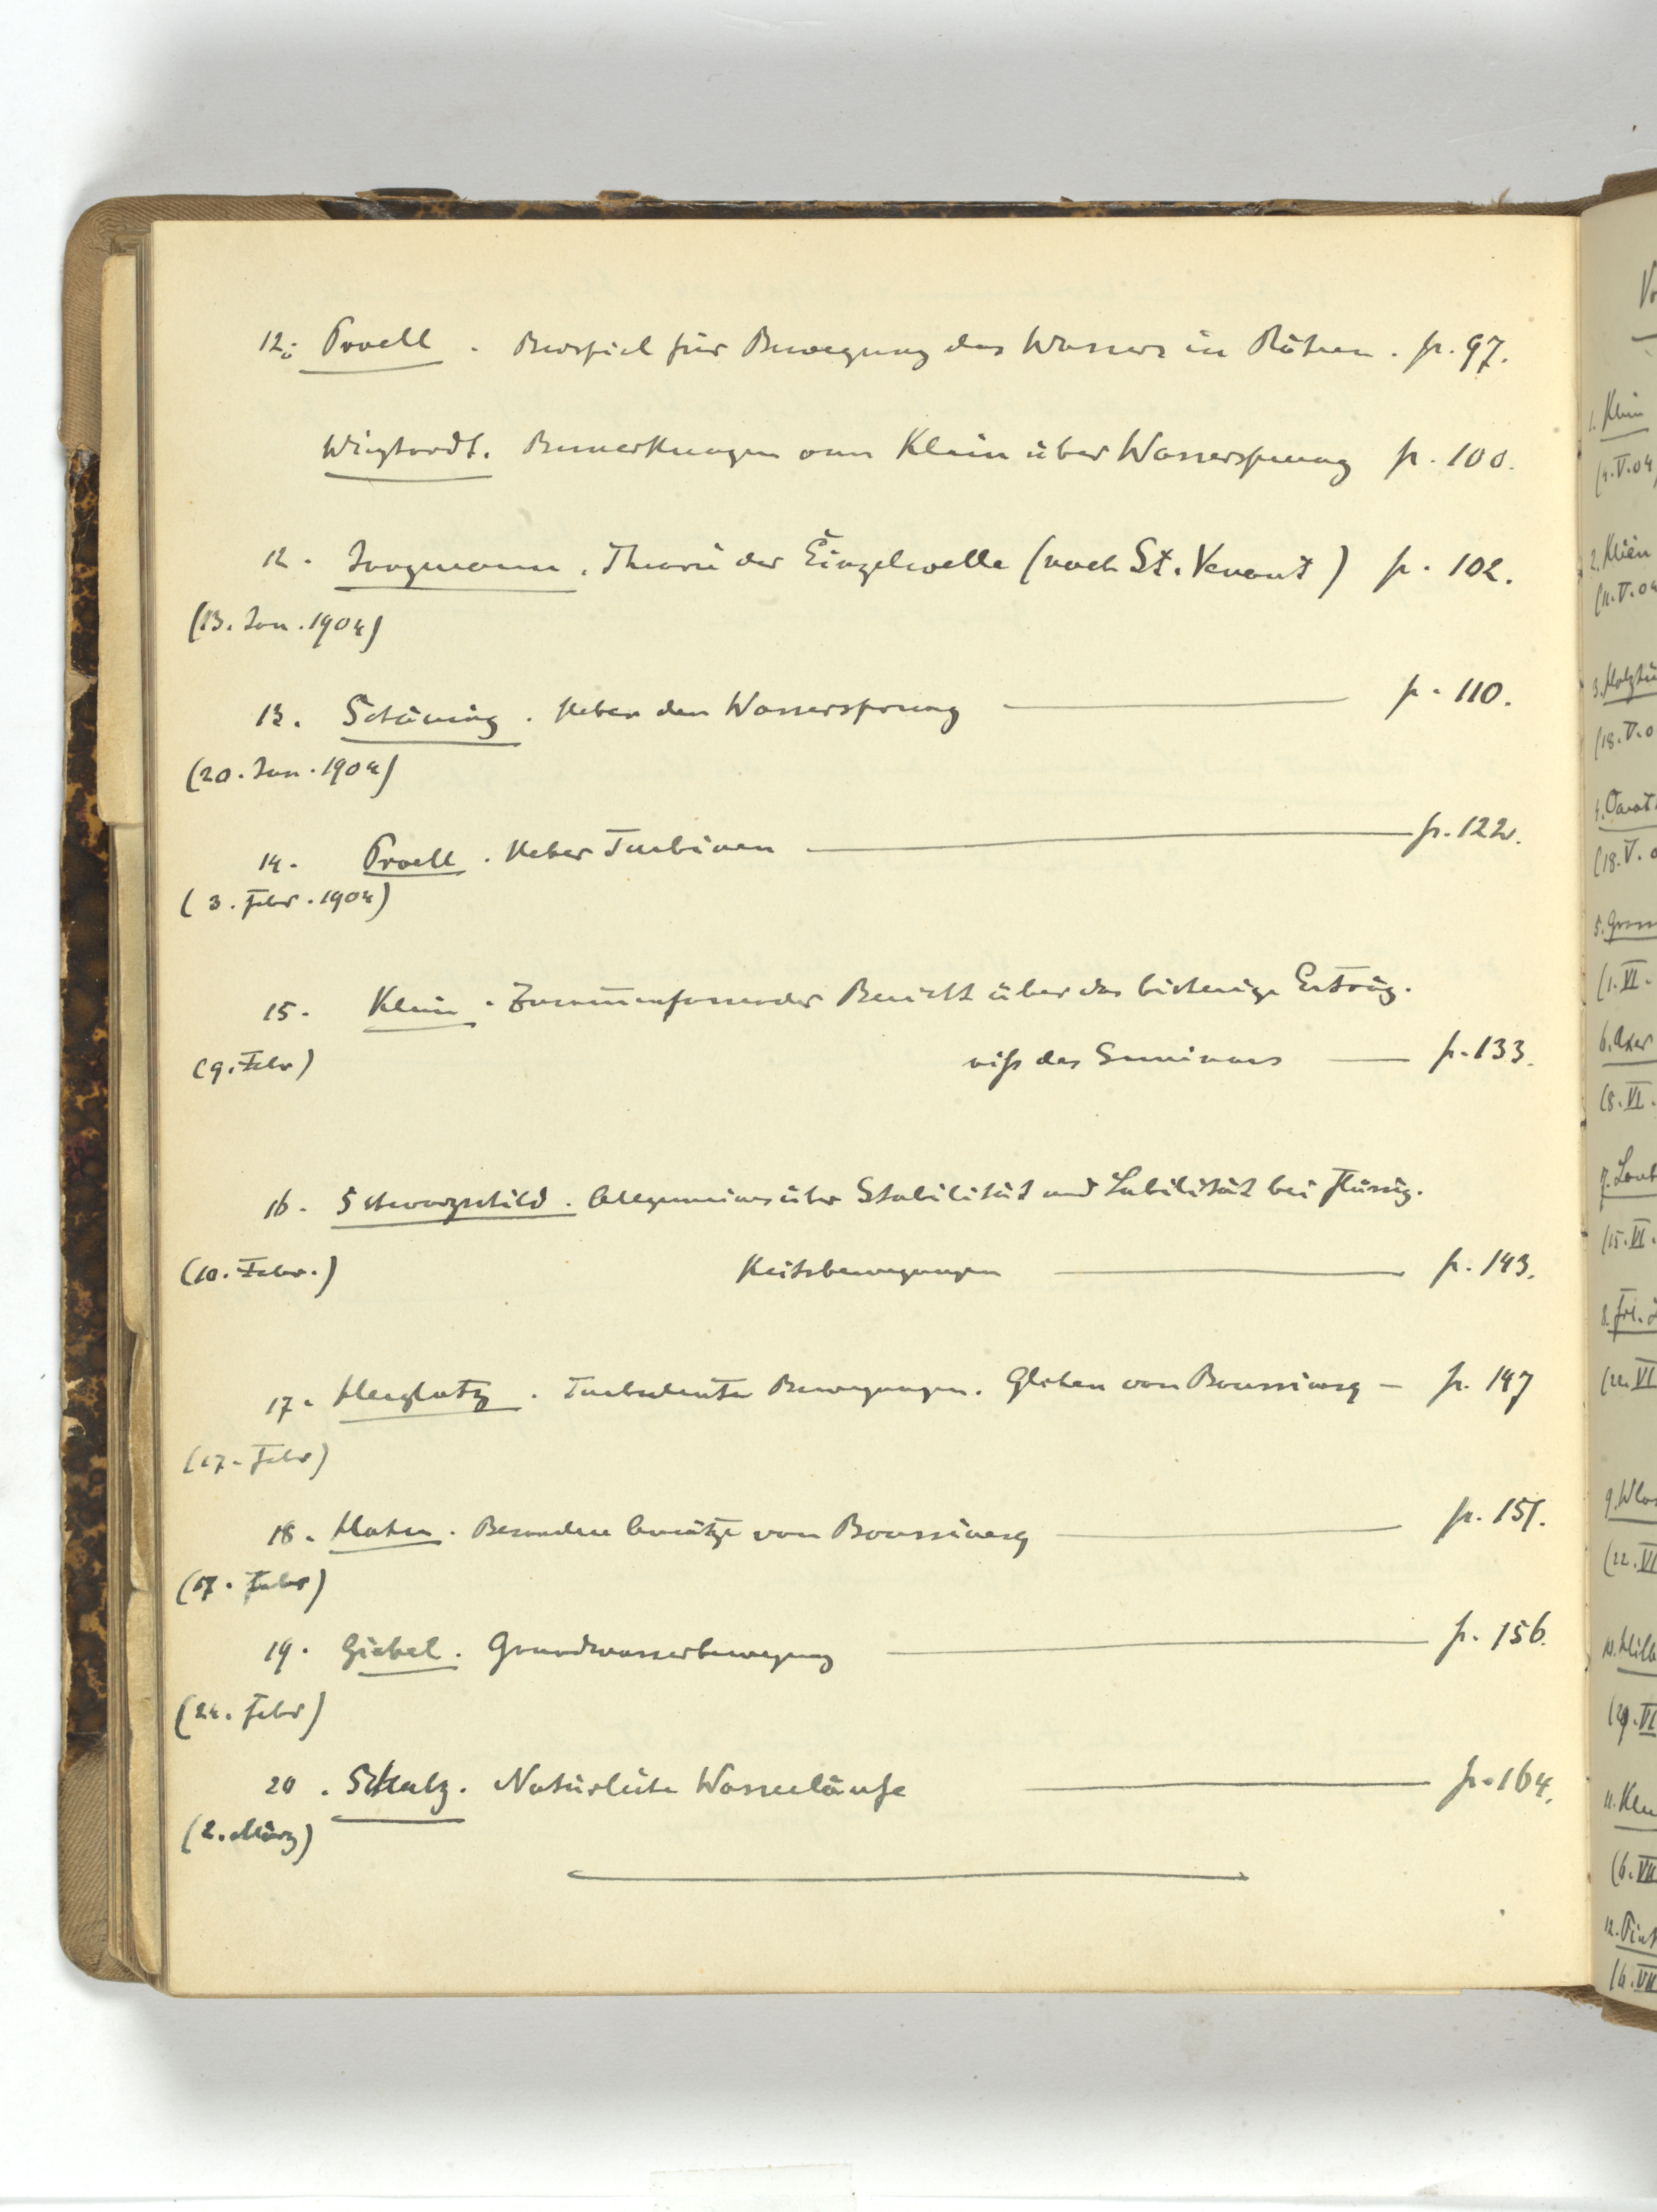 12. Proell. Beispiel für Bewegung des Wassers in Röhren. p. 97.
Wieghardt. Bemerkungen von Klein über Wassersprung p. 100.
12. Jungmann. Theorie der Einzelwelle (nach St. Venant) p. 102.
(13. Jan. 1904)
13. Schüning. Ueber den Wassersprung p. 110.
(20. Jan. 1904)
14. Proell. Ueber Turbinen p. 122.
(3. Febr. 1904)
15. Klein. Zusammenfassender Bericht über das bisherige Erträg.
(9. Febr) niß des Seminars p. 133.
16. Schwarzschild. Allgemeines über Stabilität und Labilität bei Flüssig.
(10. Febr.) Keitsbewegungen p. 143.
17. Herglotz. Turbulente Bewegungen. Glchen von Boussinesq – p. 147
(17. Febr)
18. Hahn. Besondere Ansätze von Boussinesq p. 151.
(17. Febr)
19. Giebel. Grundwasserbewegung p. 156.
(24. Febr)
20. Schulz. Natürliche Wasserläufe p. 164.
(2. März)
1. Klein
(4.V.04)
2. Klein
(11.V.04
3.
(18.V.0
4.
(18.V.0
5.
(1.VI.
6. Axer
(8.VI.
7.
(15.VI.
8. Frl.
(22.VI
9.
(22.VI
10.
(29.VI
11.
(6.VII
12.
(6.VII